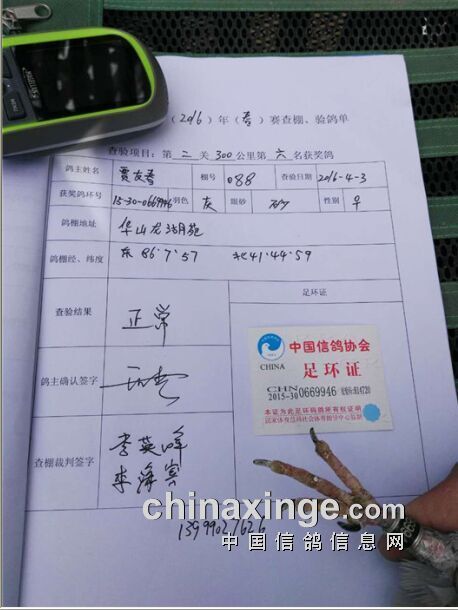 (2016)年(春)赛查棚、验鸽单
查验项目:第二关300公里第六名获奖鸽
鸽主姓名 贾友春 棚号 088 查验日期 2016-4-3
获奖鸽环号 15-30-0669946 羽色 灰 眼砂 砂 性别 ♀
鸽棚地址 华山龙湖月苑
鸽棚经、纬度 东 86°7′57 北41·44·59
查验结果 正常
足环证
中国信鸽协会
CHINA 足环证
CHN
2015-30 0669946
本证为此足环码鸽所有权证明
国家体育总局社会体育指导中心监制
鸽主确认签字
查棚裁判签字 李英峰
李海宾
13999027626
chinaxinge.com
中国信鸽信息网